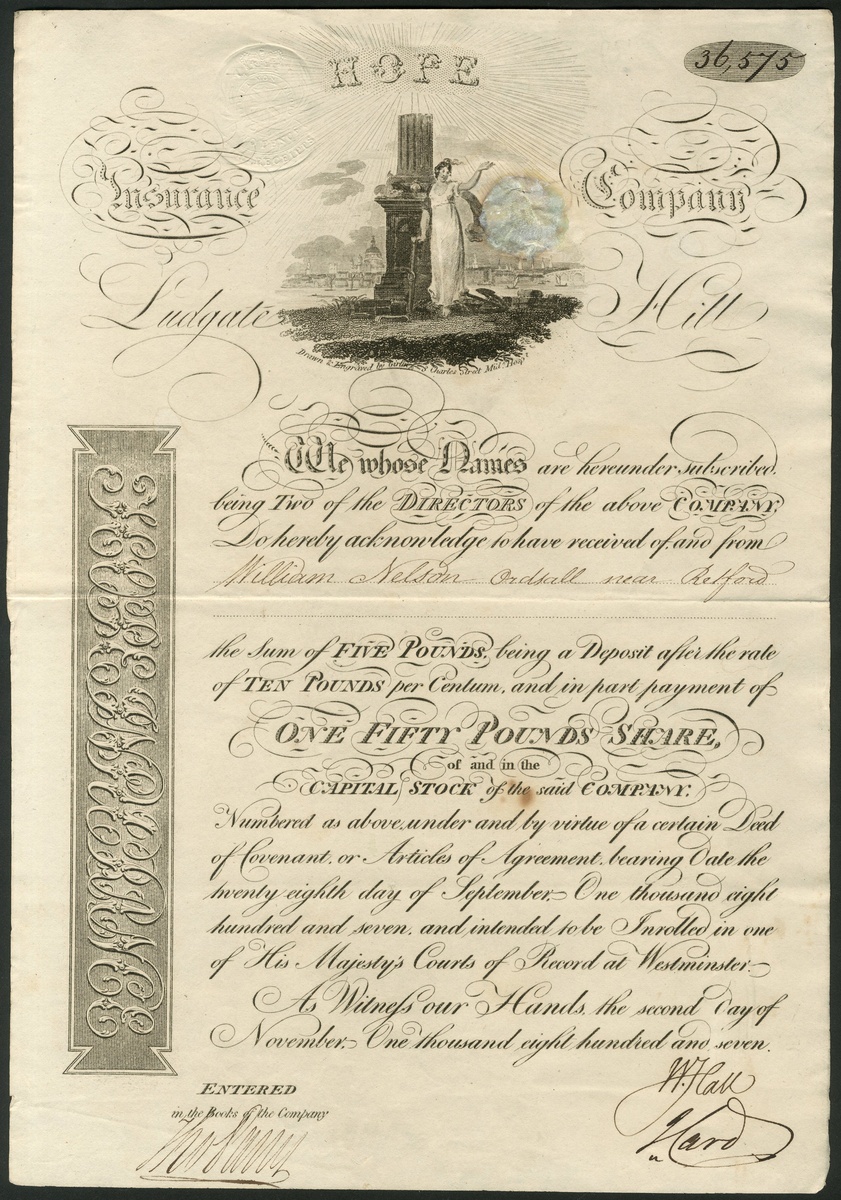 HOPE
36,575
Insurance Company
Ludgate Hill
Drawn & Engraved by Charles Street Midx. Hospl.
We whose Names are hereunder subscribed,
being Two of the DIRECTORS of the above COMPANY,
Do hereby acknowledge to have received of, and from
William Nelson Ordsall near Retford
the Sum of FIVE POUNDS, being a Deposit after the rate
of TEN POUNDS per Centum, and in part payment of
ONE FIFTY POUNDS SHARE,
of and in the
CAPITAL STOCK of the said COMPANY.
Numbered as above, under and by virtue of a certain Deed
of Covenant, or Articles of Agreement, bearing Date the
twenty eighth day of September, One thousand eight
hundred and seven, and intended to be Inrolled in one
of His Majesty's Courts of Record at Westminster.
As Witness our Hands, the second Day of
November, One thousand eight hundred and seven.
W. Hall
ENTERED
in the Books of the Company